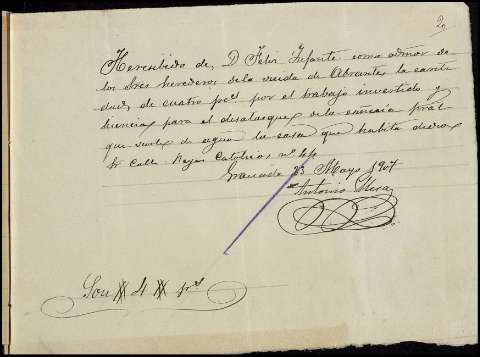 2
He recibido de D. Felix Infante como admor de
los Sres herederos de la viuda de Abrantes la canti
dad, de cuatro pts por el trabajo invertido y
licencia para el desatasque de la cañeria pral
que surte de agua la casa que habita dicho
Sr Calle Reyes Catolicos nº 44
Granada 23 Mayo 1907
Antonio Mesa
Son # 4 # pts